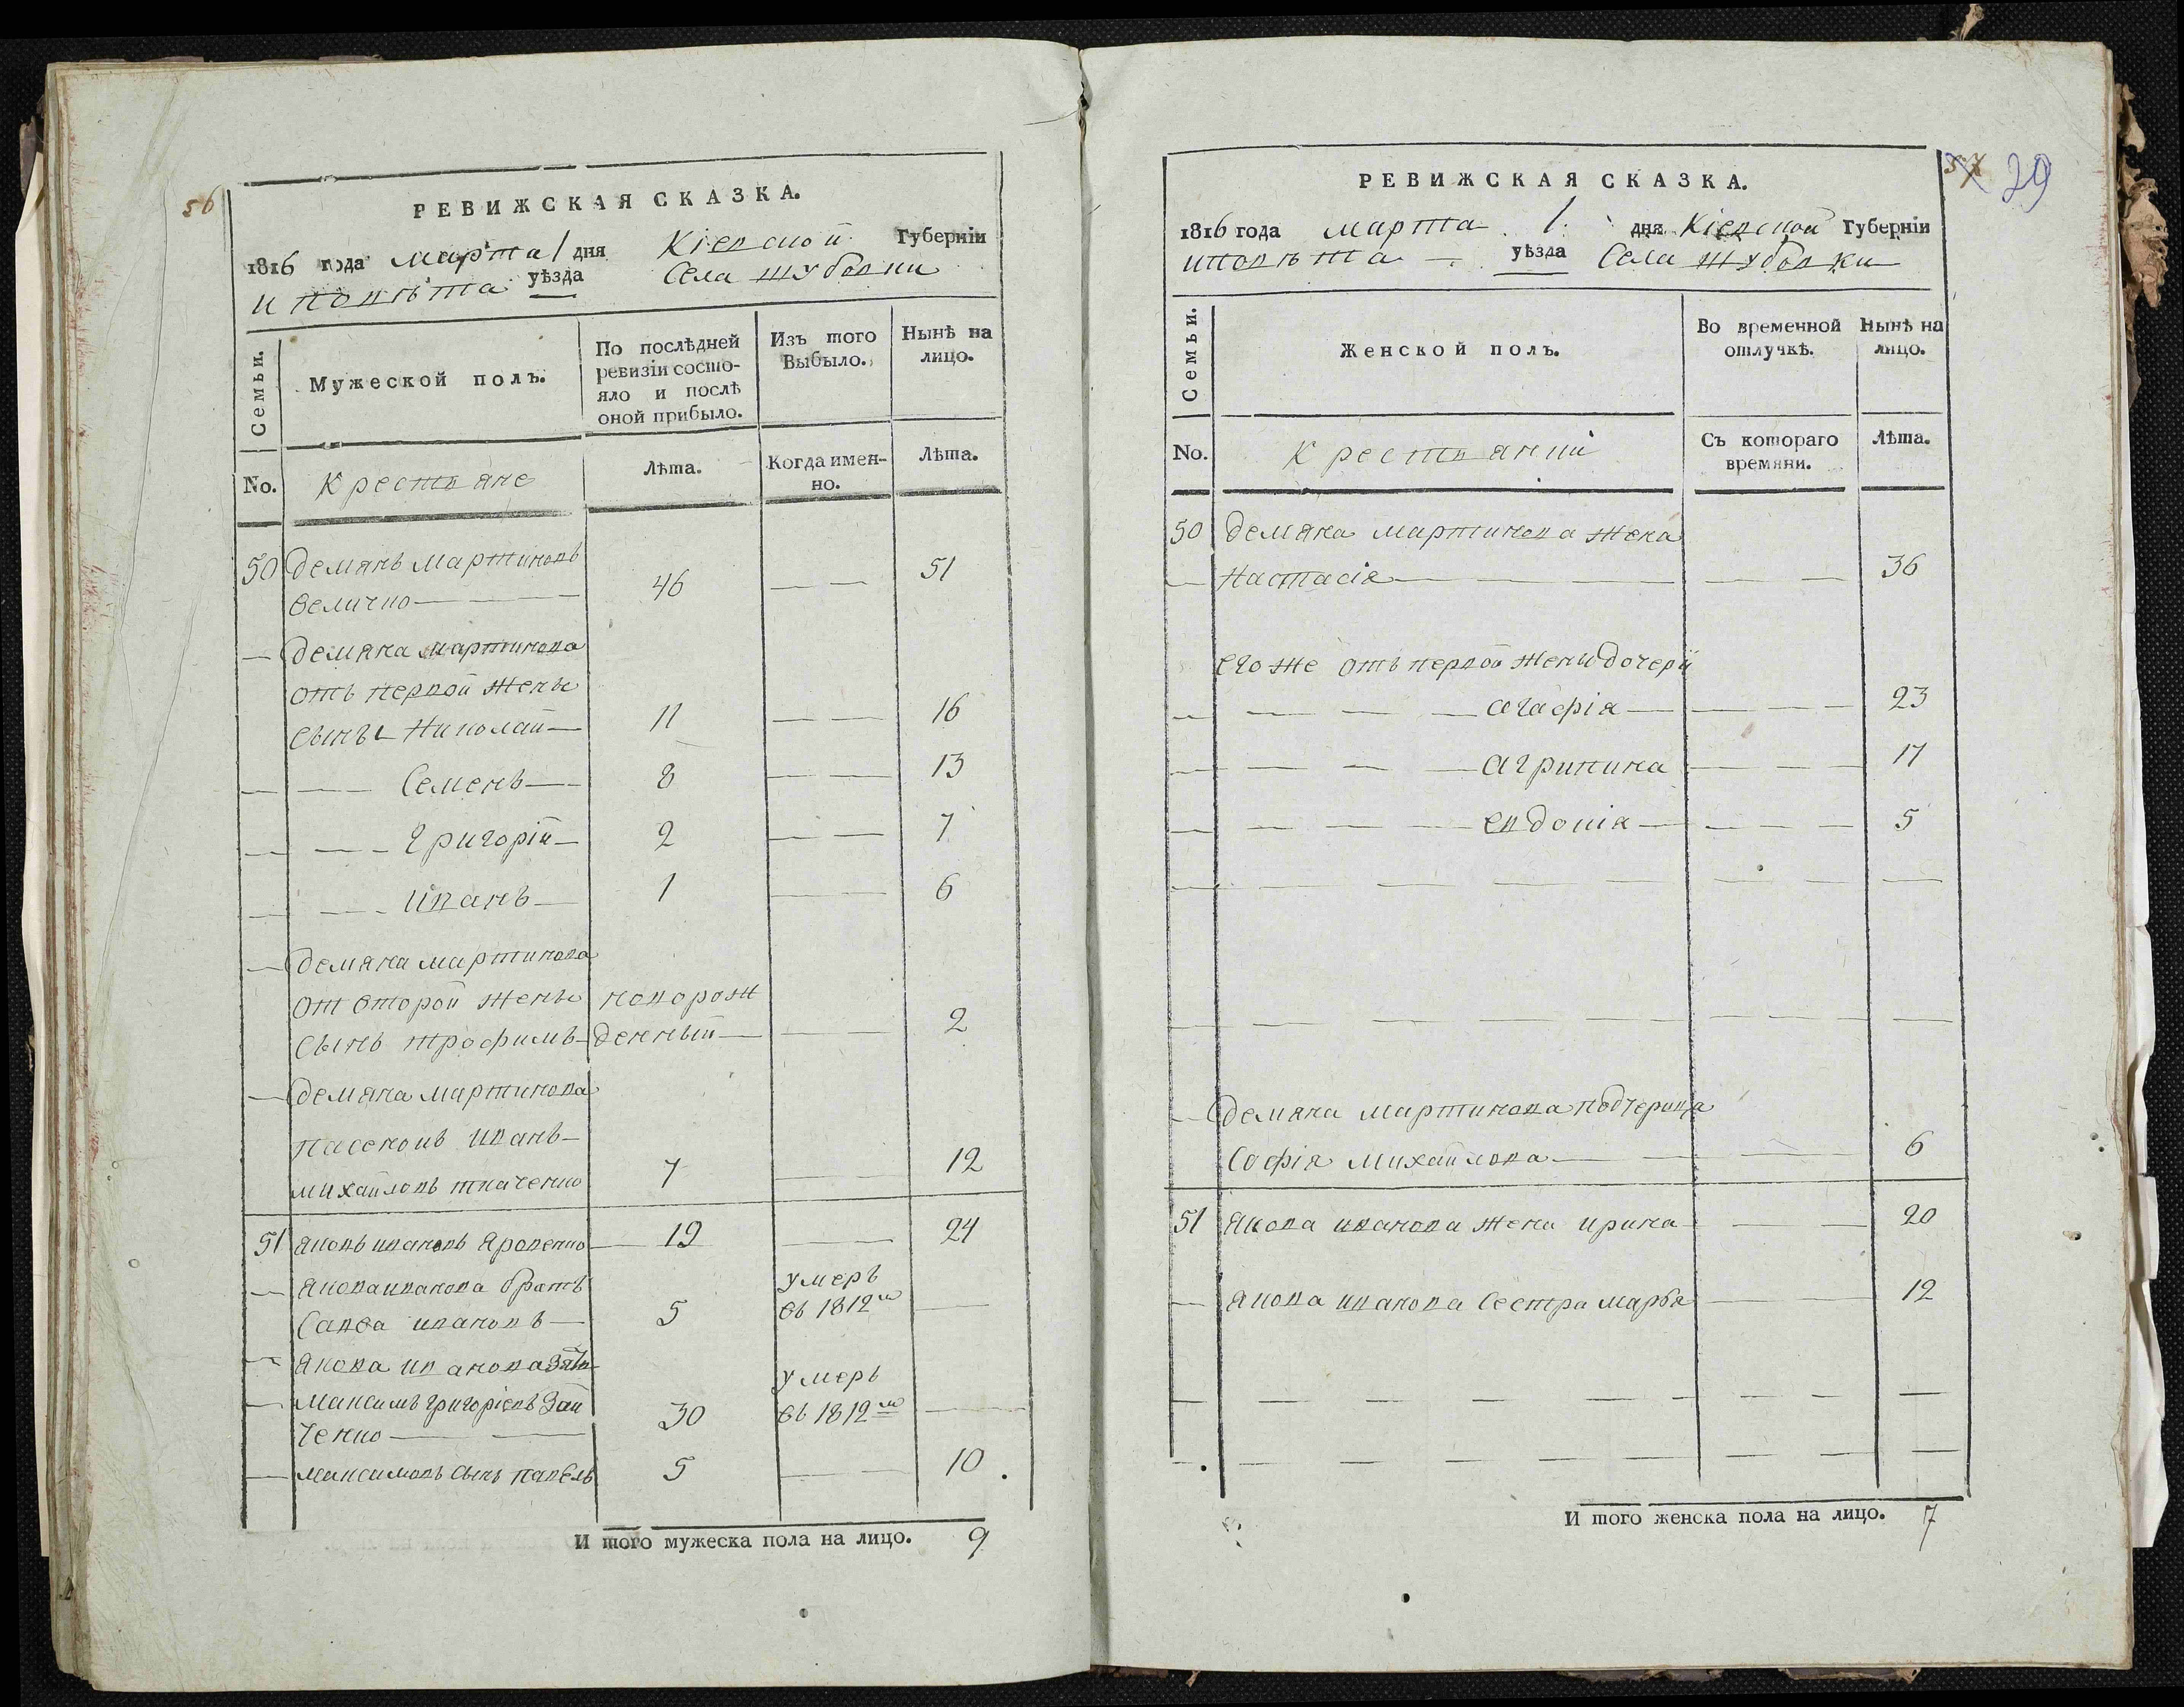 56
РЕВИЖСКАЯ СКАЗКА.
1816 года марта 1 дня Кіевской Губерніи
и повѣта уѣзда Села жубовки
Семьи.
Мужеской полъ.
По послѣдней ревизіи состо-
яло и послѣ
оной прибыло.
Изъ того
Выбыло.
Нынѣ на
лицо.
No.
Крестьяне
Лѣта.
Когда имен-
но.
Лѣта.
50 Демянъ мартиновъ
величко 46 51
Демяна мартинова
отъ первой жены
сынъ 1 Николай 11 16
Семенъ 8 13
Григорій 2 7
иванъ 1 6
Демяна мартинова
от второй жены новорож
сынъ трофимъ денный 2
Демяна мартинова
пасенокъ иванъ
михайловъ ткаченко 7 12
51 яковъ ивановъ яровенко 19 24
якова иванова братъ умеръ
Савва ивановъ 5 въ 1812м
якова иванова зять
максимъ григоріевъ Зай умеръ
ченко 30 въ 1812м
максимовъ сынъ павелъ 5 10.
И того мужеска пола на лицо. 9
57 29
РЕВИЖСКАЯ СКАЗКА.
1816 года марта 1. дня Кіевской Губерніи
и повѣта уѣзда Села жубовки
Семьи.
Женской полъ.
Во временной
отлучкѣ.
Нынѣ на
лицо.
No.
Крестьянки
Съ котораго
времяни.
Лѣта.
50 Демяна мартинова жена
Настасія 36
его же отъ первой жены дочери
агафія 23
агрипина 17
евдокія 5
Демяна мартинова подчерица
Софія михайлова 6
51 якова иванова жена ирина 20
якова иванова Сестра марья 12
И того женска пола на лицо. 7